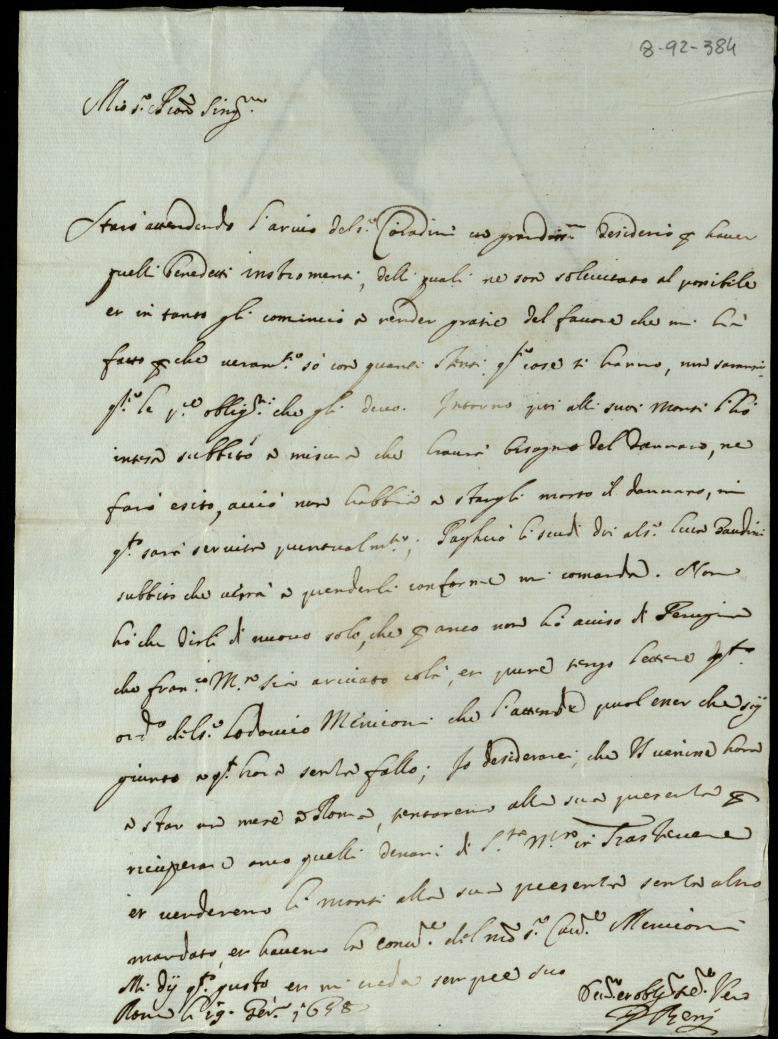 8-92-384
Mio s.r Pron Sing.mo
Starò attendendo l'arrivo del s.r Coradini con grandiss.o desiderio p haver
quelli benedetti instromenti, delli quali ne son sollecitato al possibile
et in tanto gli comincio a render gratie del favore che mi hà
fatto p che veram.te sò con quanti stenti q.te cose si hanno, non
q.li le obligni che gli devo. Intorno poi alli suoi Monti l'hò
intesa subbito a misura che haurà bisogno del dannaro, ne
farò esito, acciò non habbia a stargli morto il dannaro, in
q.to sarà servita puntualm.te; Pagherò li scudi doi al s.r Luca Baudini
subbito che verrà a prenderli conforme mi comanda. Non
hò che dirli di nuovo solo, che p anco non hò aviso di Perugia
che Fran.co M.a sia arrivato colà, et pure tengo lettere
del s.r Lodovico Meniconi che l'attende puol esser che sij
giunto a q.t hora senza fallo; Io desiderarei, che VS venisse hora
a star un mese a Roma, tentaremo alla sua presenza p
ricuperare anco quelli denari di S.ta M.a in Trastevere
et venderemo li Monti alla sua presenza senza altro
mandato, et haveremo la del s.r Cav.re Meniconi
Mi dij q.to gusto et mi creda sempre suo
Roma li 29 1698
Dev.mo et oblig.mo se.re Vero